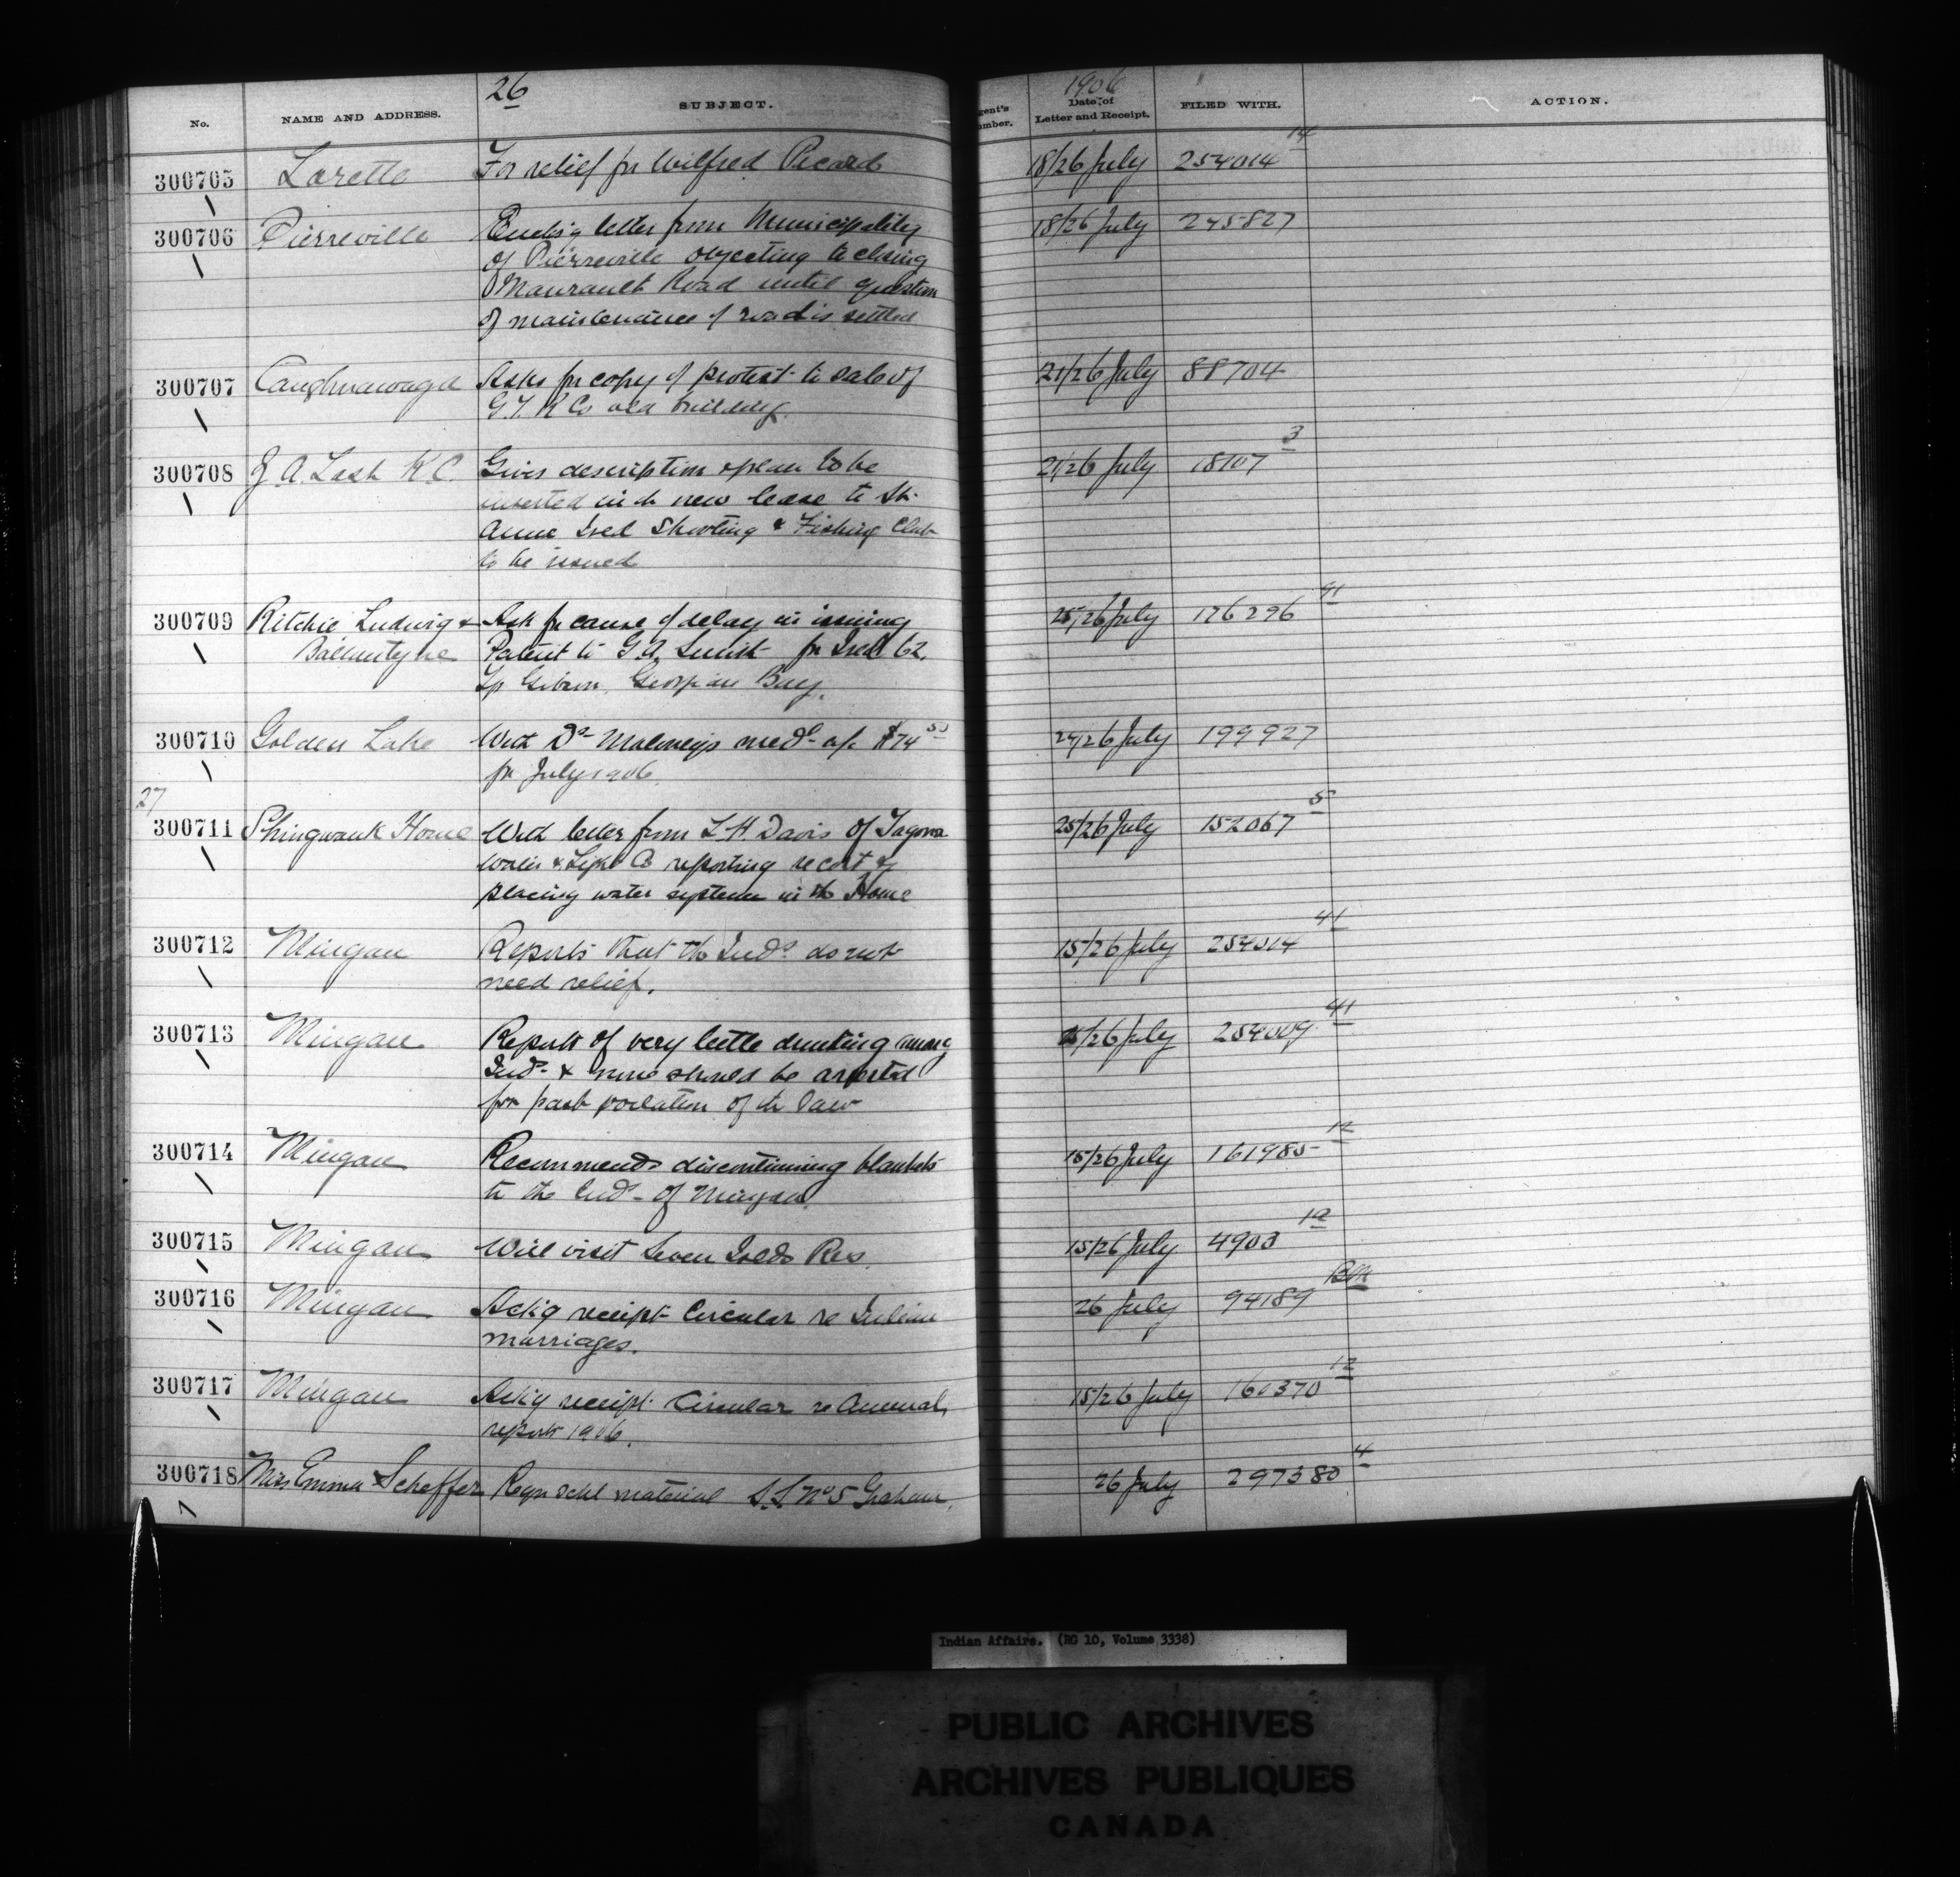 26
1906
No.
NAME AND ADDRESS.
SUBJECT.
gent's
umber.
Date of
Letter and Receipt.
FILED WITH.
ACTION.
300705 Lorette For relief for Wilfred Picard 18/26 July 254014 14
300706 Pierreville Encl'g letter from Municipality 18/26 July 245827
of Pierreville objecting to closing
Maurault Road until question
of maintenance of road is settled
300707 Caughnawaga Asks for copy of protest to sale of 21/26 July 88704
G.T.R Co old building.
300708 J A. Lash K.C. Gives description & plan to be 21/26 July 18107 3
inserted in th new lease to St.
Anne Isld Shooting & Fishing Club
to be issued
300709 Ritchie Ludwig & Ask for cause of delay in issuing 25/26 July 176296 91
Ballantyne Patent to G.A. for Isld 62,
Tp Gibson, Georgian Bay.
300710 Golden Lake With Dr Maloney's med' a/c $74 50 24/26 July 199927
for July 1906.
27
300711 Shingwauk Home With letter from L.H. Davis of Tagona 25/26 July 152067 5
Water & Light Co reporting re cost of
placing water system in th Home
300712 Mingan Reports that th Inds do not 15/26 July 254014 41
need relief.
300713 Mingan Reports of very little drinking among 15/26 July 254009 41
Inds & none should be arrested
for past violation of th law
300714 Mingan Recommends discontinuing blankets 15/26 July 161985 12
to the Inds of Mingan.
300715 Mingan Will visit Seven Islds Res. 15/26 July 4903 1a
300716 Mingan Ack'g receipt Circular re Indian 26 July 94189
marriages.
300717 Mingan Ack'g receipt Circular re Annual 15/26 July 160370 12
report 1906.
300718 Miss Emma Scheffer Reqn schl material S.S. No 5 Graham. 26 July 297380 4
Indian Affairs. (RG 10, Volume 3338)
PUBLIC ARCHIVES
ARCHIVES PUBLIQUES
CANADA